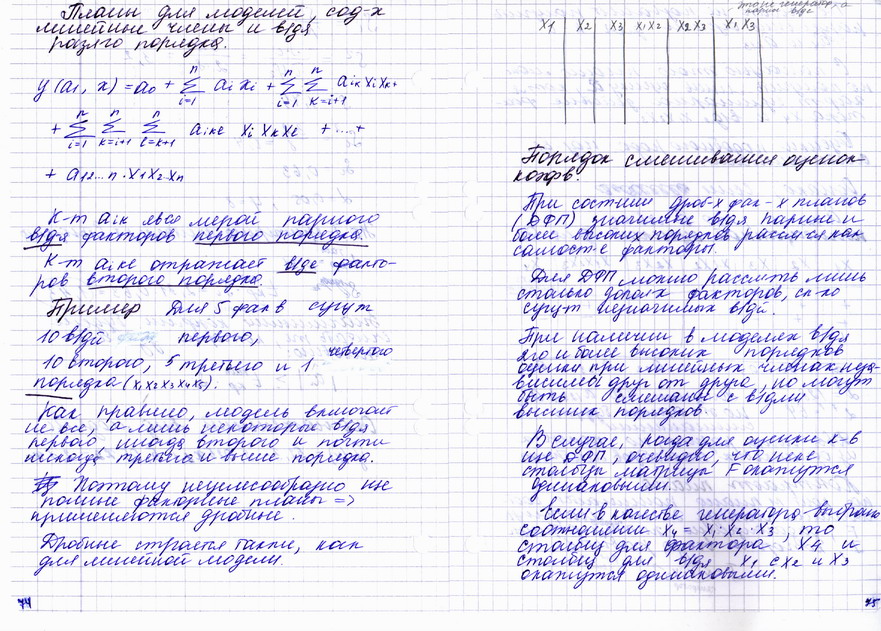 Планы для моделей, сод-х
линейные члены и вз/дя
разлго порядка.
y(a₁, x) = a₀ + Σ(i=1..n) aᵢxᵢ + Σ(i=1..n) Σ(k=i+1..n) aᵢₖ xᵢ xₖ +
+ Σ(i=1..n) Σ(k=i+1..n) Σ(l=k+1..n) aᵢₖₑ xᵢ xₖ xₑ + ... +
+ a₁₂...n · x₁ x₂ xₙ
К-т aᵢₖ явся мерой парного
вз/дя факторов первого порядка.
К-т aᵢₖₑ отражает вз/де факто-
ров второго порядка.
Пример Для 5 фак в сущут
10 вз/дй первого,
10 второго, 5 третьего и 1 четвертого
порядка (x₁x₂x₃x₄x₅).
Как правило, модель включает
не все, а лишь некоторые вз/дя
первого, иногда второго и почти
никогда третьего и выше порядка.
Поэтому нецелесообразно исп
полные факторные планы =>
применяются дробные.
Дробные строятся также, как
для линейной модели.
74
x₁ x₂ x₃ x₁x₂ x₂x₃ x₁x₃
Порядок смешивания оценок
коэфв.
При состнии дроб-х фак-х планов
(ДФП) значимые вз/дя парные и
более высоких порядков рассм-ся как
самост-е факторы.
Для ДФП можно рассм-ть лишь
столько допол-х факторов, ск-ко
сущут незначимых вз/дй.
При наличии в моделях вз/дя
2го и более высоких порядков
оценки при линейных членах неза-
висимы друг от друга, но могут
быть смешаны с вз/дями
высших порядков.
В случае, когда для оценки к-в
исп ДФП, очевидно, что неке
столбцы матрицы F окажутся
одинаковыми.
Если в качестве генератора выбрано
соотношение x₄ = x₁·x₂·x₃, то
столбец для фактора x4 и
столбец для вз/дя x₁ с x₂ и x₃
окажутся одинаковыми.
75